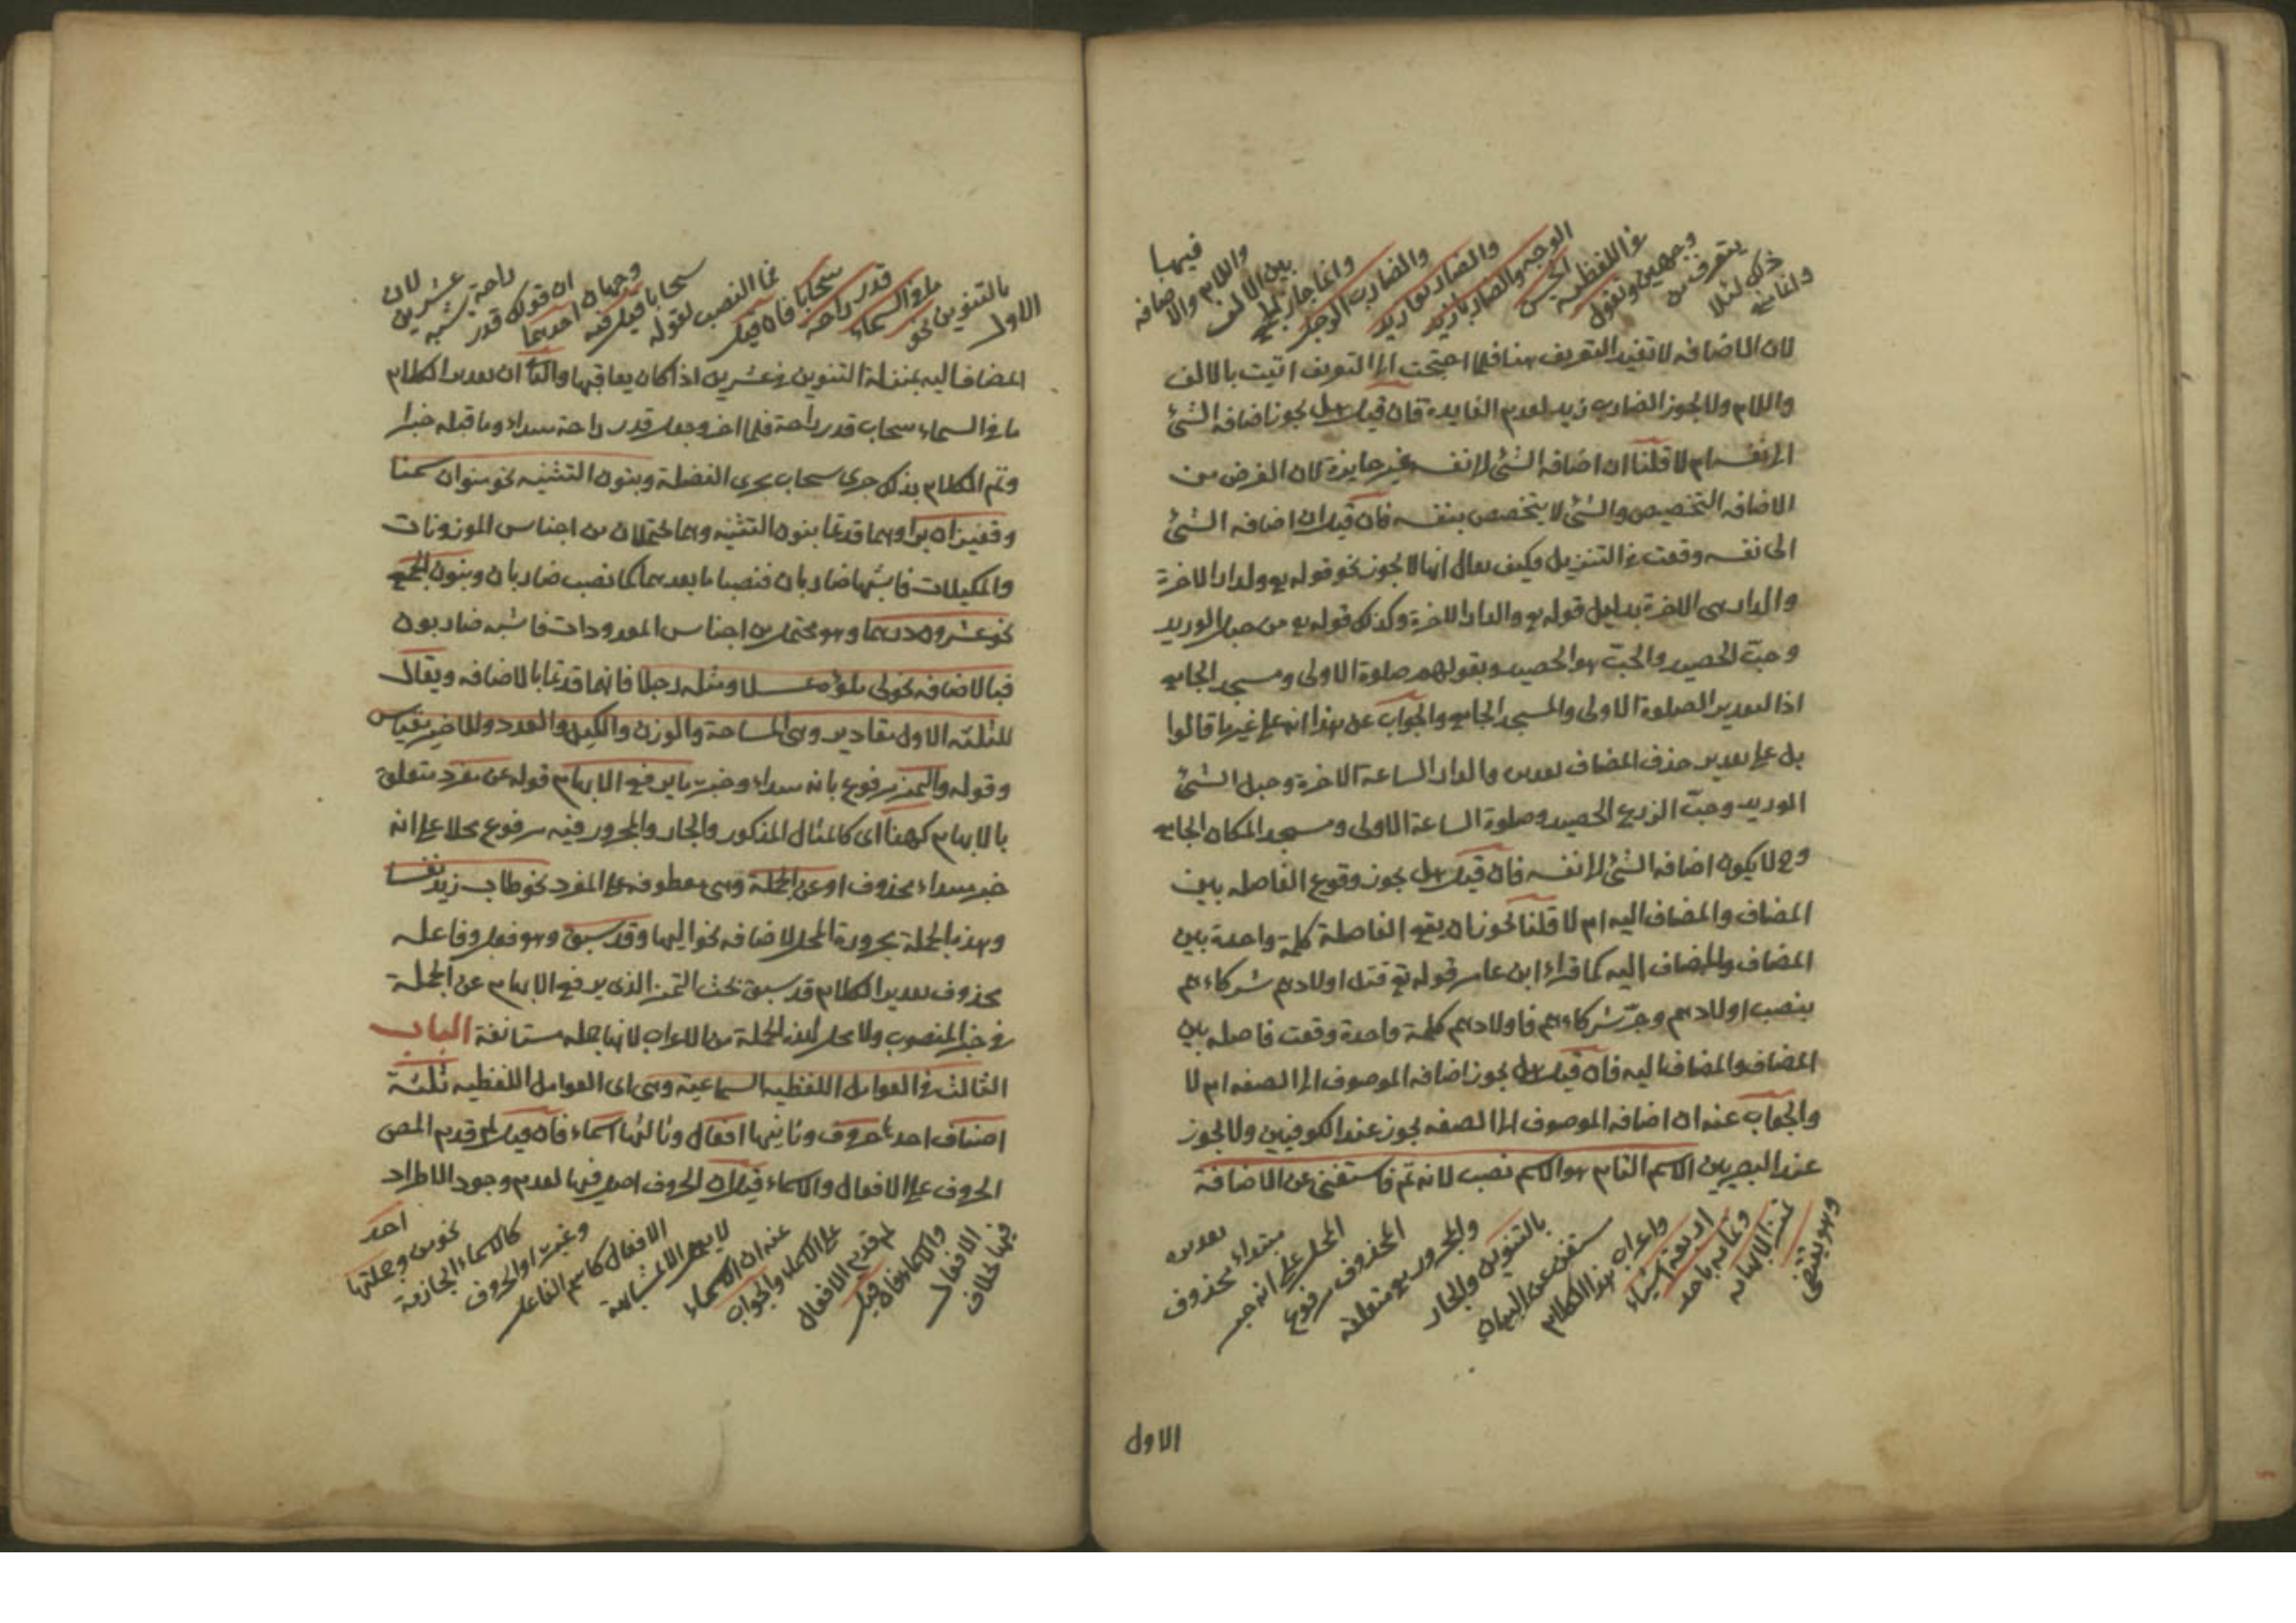 ولنا فيه
ذلك لئلا
يتعرف من
وجهين وتقول
في اللفظية
الحسن
الوجه والضاربا زيد
والضاربوا زيد
والضارب الرجل
وانما جاز الجمع
بين الالف
واللام والاضافه
فيها
لان الاضافه لا تفيد التعريف هنا فلما احتجت الى التعريف اتيت بالالف
واللام ولا يجوز الضارب زيد لعدم الفايدة فان قيل هل يجوز اضافه الشئ
الى نفسه ام لا قلنا ان اضافه الشئ الى نفسه غير جايزة لان الغرض من
الاضافه التخصيص والشئ لا يتخصص بنفسه فان قيل ان اضافه الشئ
الى نفسه وقعت في التنزيل فكيف يقال انها لا يجوز نحو قوله تع ولدار الاخرة
والدار هي الاخرة بدليل قوله تع والدار الاخرة وكذلك قوله تع من حبل الوريد
وحبّ الحصيد والحبّ هو الحصيد وبقولهم صلوة الاولى ومسجد الجامع
اذ التقدير الصلوة الاولى والمسجد الجامع والجواب عن هذا انه على غير ما قالوا
بل على تقدير حذف المضاف تقديره والدار الساعة الاخرة وحبل الشئ
الوريد وحبّ الزرع الحصيد وصلوة الساعة الاولى ومسجد المكان الجامع
وح لا يكون اضافه الشئ الى نفسه فان قيل هل يجوز وقوع الفاصله بين
المضاف والمضاف اليه ام لا قلنا يجوز ان يقع الفاصلة كلمة واحدة بين
المضاف والمضاف اليه كما قراء ابن عامر قوله تع قتل اولادهم شركاءهم
بنصب اولادهم وجرّ شركاءهم فاولادهم كلمة واحدة وقعت فاصله بين
المضاف والمضاف اليه فان قيل هل يجوز اضافه الموصوف الى الصفه ام لا
والجواب عنه ان اضافه الموصوف الى الصفه يجوز عند الكوفيين ولا يجوز
عند البصريين الاسم التام هو الاسم نصب لانه تم فاستغنى عن الاضافة
وهو يقتضى
وتمامه باحد
اربعة اشياء
واعراب هذا الكلام
مستغن عن البيان
بالتنوين والجار
والمجرور متعلقه
المحذوف مرفوع
المحل على انه خبر
مبتداء محذوف
تقديره
الاول
الاول
بالتنوين نحو
ما في السماء
قدر راحة
سحابا فان قيل
بما النصب لقوله
سحابا قيل فيه
وجهان احدهما
ان قولك قدر
راحة يشبه
عشرين
لان
المضاف اليه بمنزلة التنوين في عشرين اذا كان يعاقبها والثا ان تقدير الكلام
ما في السماء سحاب قدر راحة فلما اخر وجعل قدر راحة مبتداء وما قبله خبرا
وتم الكلام بذلك جرى سحاب مجرى الفضلة وبنون التثنيه نحو منوان سمنا
وقفيزان برا وهما قد تما بنون التثنيه وهما يحتملان من اجناس الموزونات
والمكيلات فاشبها ضاربان فنصبا ما بعدهما كما نصب ضاربان وبنون الجمع
نحو عشرون درهما وهو محتمل من اجناس المعدودات فاشبه ضاربون
فبالاضافه نحو لى ملؤه عسلا ومثله رجلا فانهما قد تما بالاضافه ويقال
للثلثه الاول مقادير وهى المساحة والوزن والكيل والعدد وللاخير مقياس
وقوله والتمييز مرفوع بانه مبتداء وخبره ما يرفع الابهام قوله عن مفرد متعلق
بالابهام كهذا اى كالمثال المذكور والجار والمجرور فيه مرفوع محلا على انه
خبر مبتداء محذوف او عن الجملة وهى معطوفه على المفرد نحو طاب زيد نفسا
وهذه الجملة مجرورة المحل لاضافه نحو اليها وقد سبق وهو فعل وفاعله
محذوف تقدير الكلام قد سبق بحث التميز الذى يرفع الابهام عن الجملة
في خبر المنصوب ولا محل لهذه الجملة من الاعراب لانها جمله مستانفة الباب
الثالث في العوامل اللفظيه السماعية وهى اى العوامل اللفظيه ثلثة
اصناف احدها حروف وثانيها افعال وثالثها اسماء فان قيل لم قدم المص
الحروف على الافعال والاسماء قيل ان الحروف اصل فيها لعدم وجود الاطراد
فيها خلاف
الافعال
والاسماء فان قيل
لم قدم الافعال
على الاسماء والجواب
عنه ان الاسماء
لا يعمل الا لمشابهة
الافعال كاسم الفاعل
وغيره او الحروف
كالاسماء الجازمة
نحو من وجملتها
احد